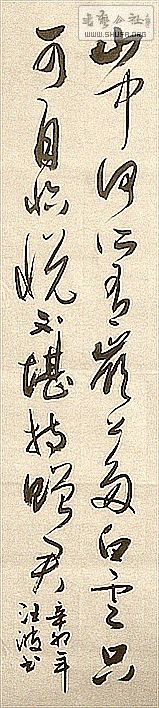 山中何所有嶺上多白雲只
可自怡悦不堪持贈君
辛卯年
汪波书
书艺公社
www.SHUFA.ORG